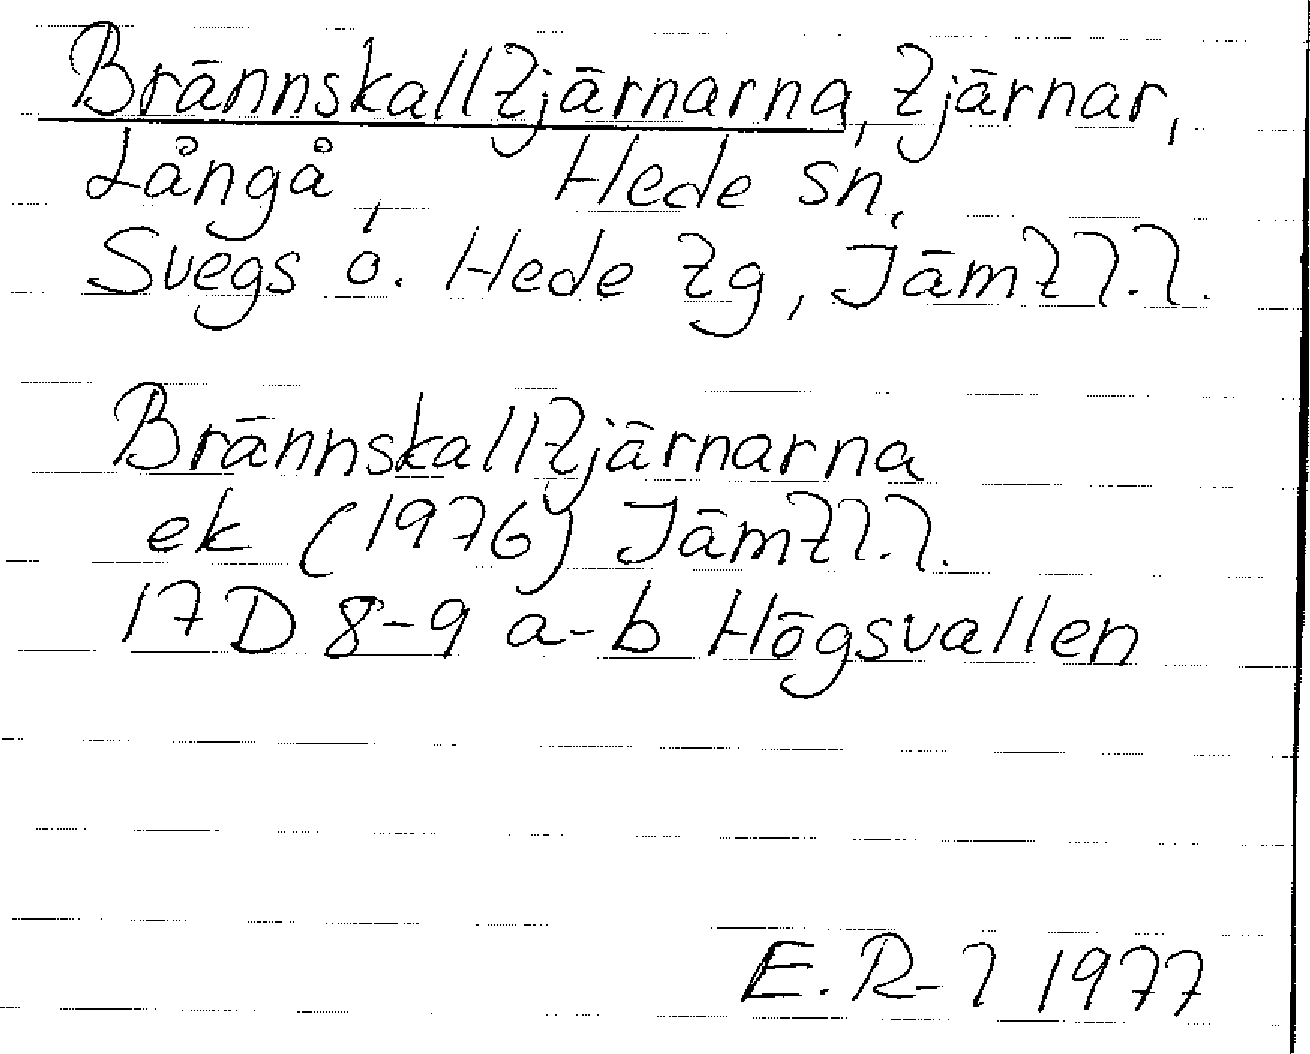 Brännskalltjärnarna, tjärnar,
Långå, Hede sn,
Svegs o. Hede tg, Jämtl.l.
Brännskalltjärnarna
ek (1976) Jämtl.l.
17D 8-9 a-b Högsvallen
E. R-l 1977